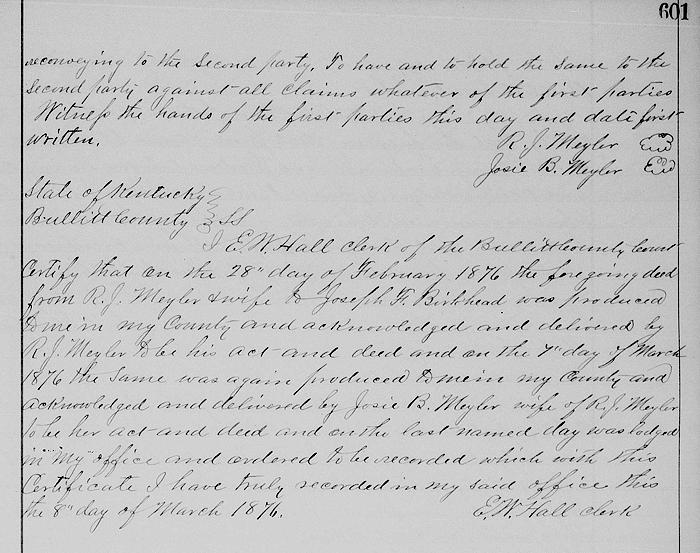 601
reconveying to the Second party, To have and to hold the same to the
Second party against all claims whatever of the first parties
Witness the hands of the first parties this day and date first
written. R. J. Meyler
Josie B. Meyler
State of Kentucky
Bullitt County SS
I E. W. Hall clerk of the Bullitt County Court
Certify that on the 28" day of February 1876 the foregoing deed
from R. J. Meyler & wife to Joseph F. Birkhead was produced
to me in my County and acknowledged and delivered by
R. J. Meyler to be his act and deed and on the 7" day of March
1876 the same was again produced to me in my County and
acknowledged and delivered by Josie B. Meyler wife of R. J. Meyler
to be her act and deed and on the last named day was lodged
in my office and ordered to be recorded which with this
Certificate I have truly recorded in my said office this
the 8" day of March 1876. E. W. Hall clerk